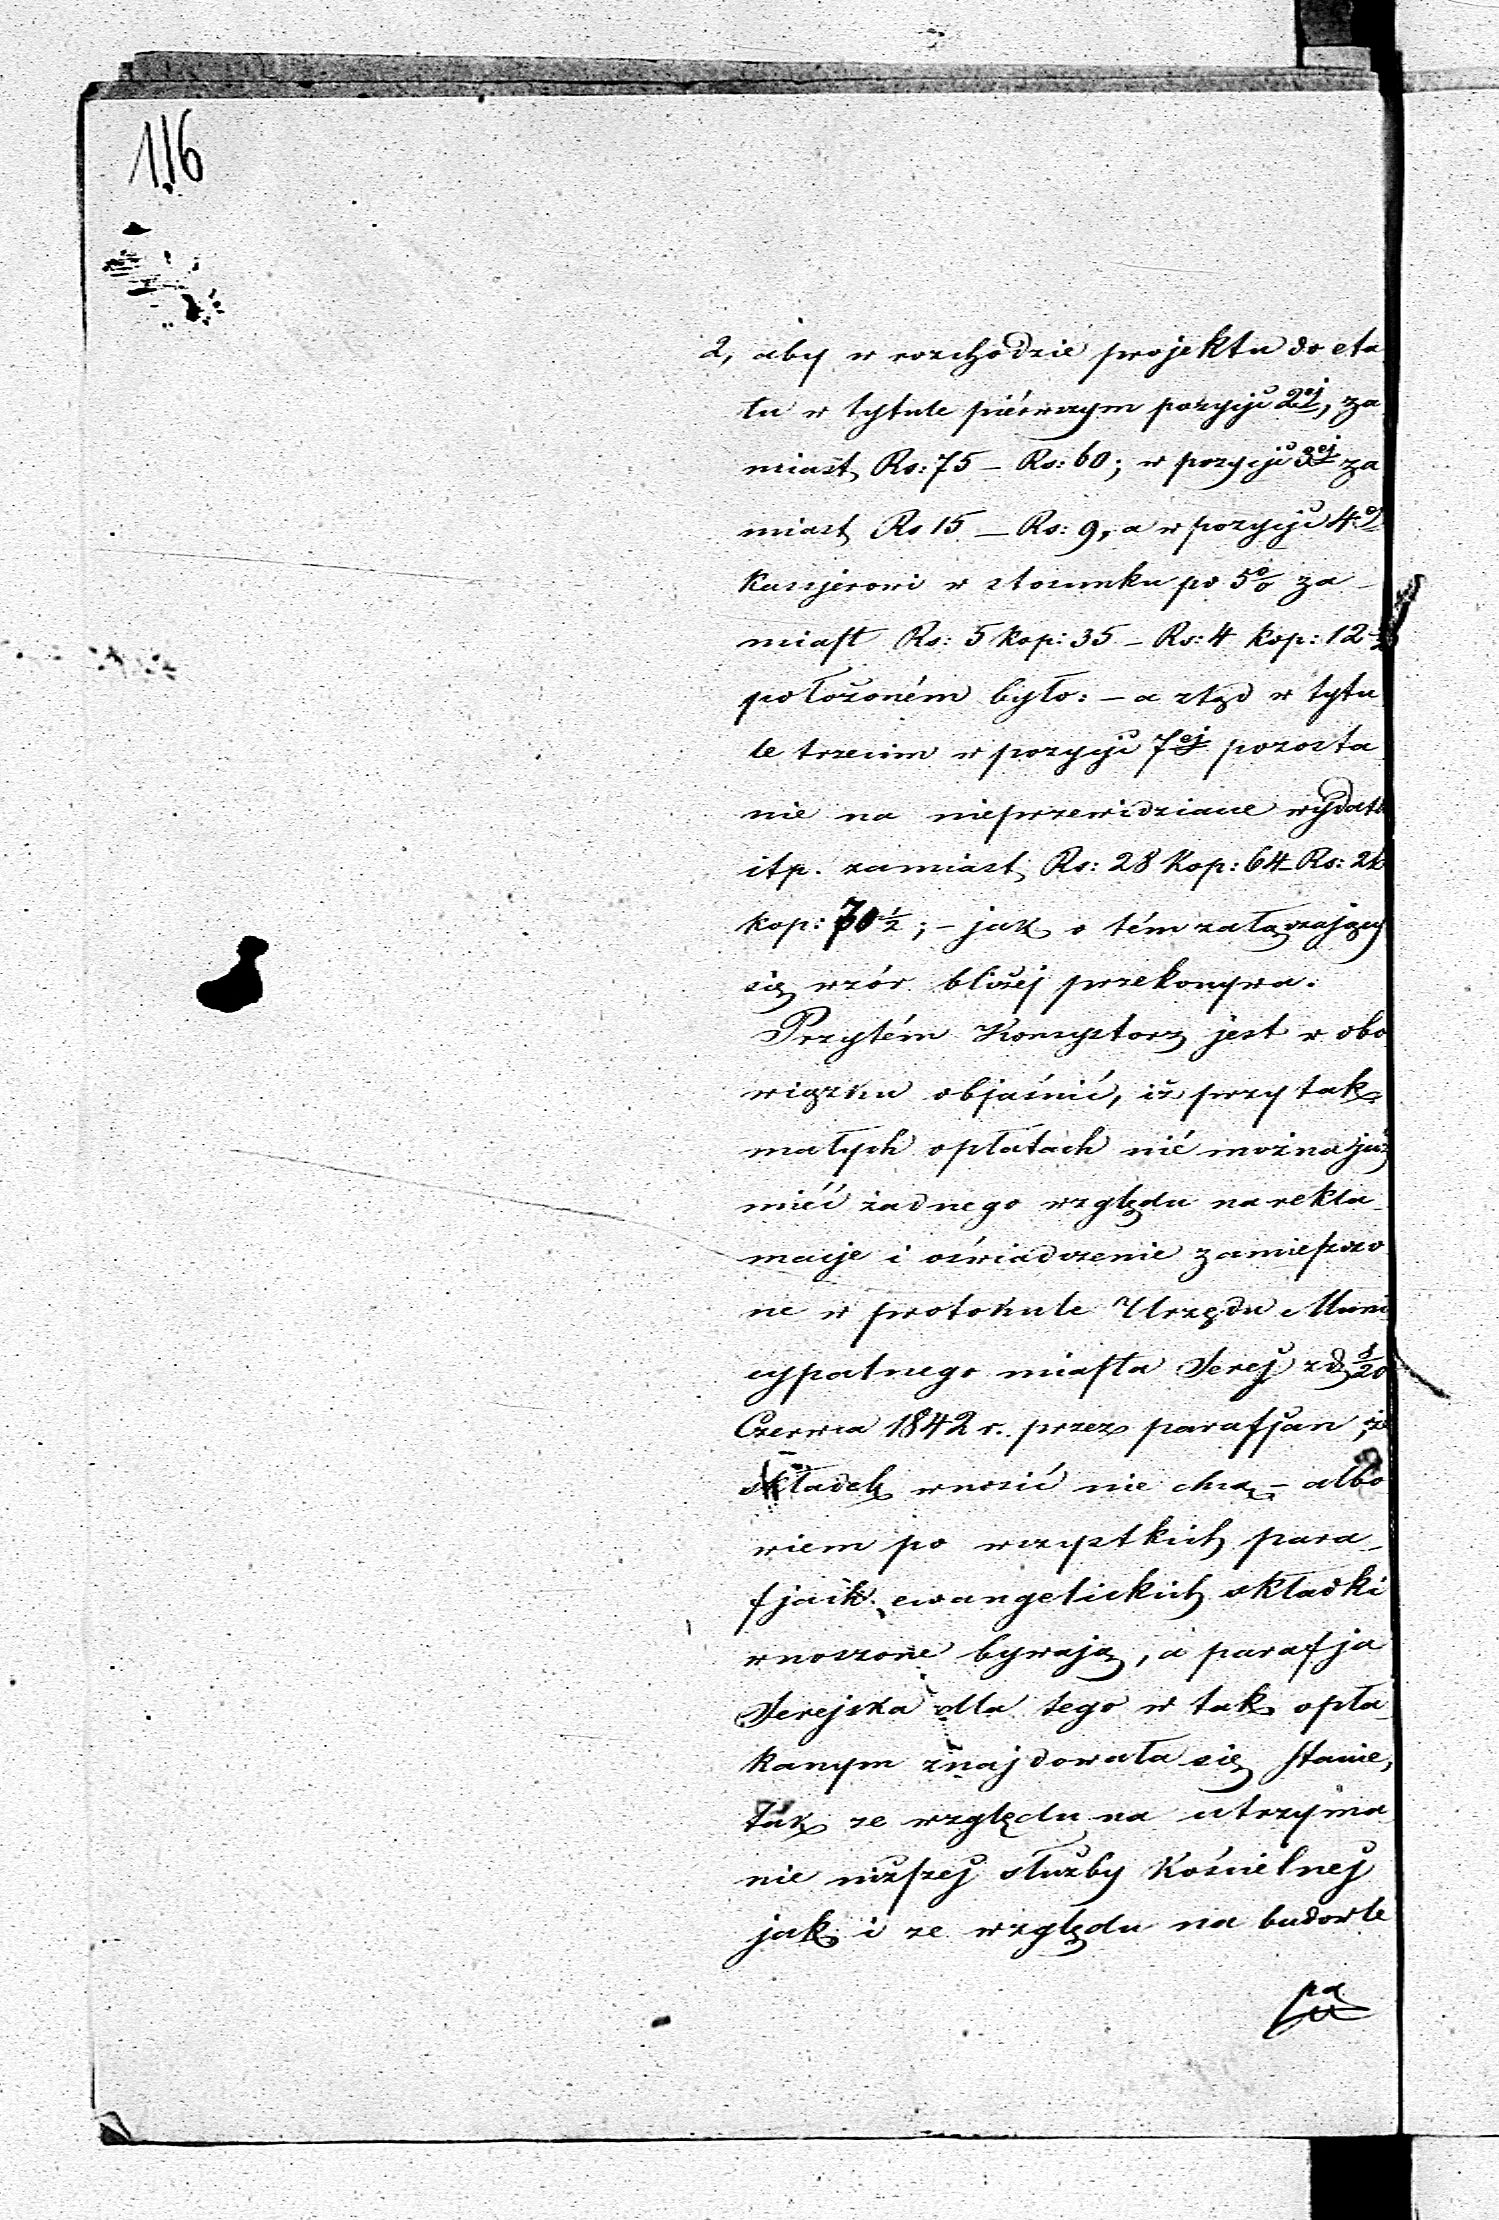 116
2, aby w rozchodzie projektu do eta
tu w tytule piérwszym pozycji 2ej, za
miast Rs: 75 – Rs: 60; w pozycji 3ej za
miast Rs 15 – Rs: 9, a w pozycji 4ej
Kassjerowi w stosunku po 5% za-
miast Rs: 5 kop: 35 – Rs: 4 kop: 12
położoném było: – a ztąd w tytu
le trzecim w pozycji 7ej pozosta
nie na nieprzewidziane wydatk
itp. zamiast Rs: 28 Kop: 64 – Rs:
kop: 70½; – jak o tém załączający
się wzór bliżej przekonywa.
Przytém Konsystorz jest w obo
wiązku objaśnić, iż przy tak
małych opłatach nié można już
miéć żadnego względu na rekla-
macje i oświadczenie zamieszczo
ne w protokule Urzędu Muni
cypalnego miasta Serej z d. 8/20
Czerwca 1842 r. przez parafjan, że
składek wnosić nie chcą – albo
wiem po wszystkich para-
fjach ewangelickich składki
wnoszone bywają, a parafja
Serejska dla tego w tak opła
kanym znajdowała się stanie,
tak ze względu na utrzyma
nie niższej służby Kościelnej
jak i ze względu na budowle
pa